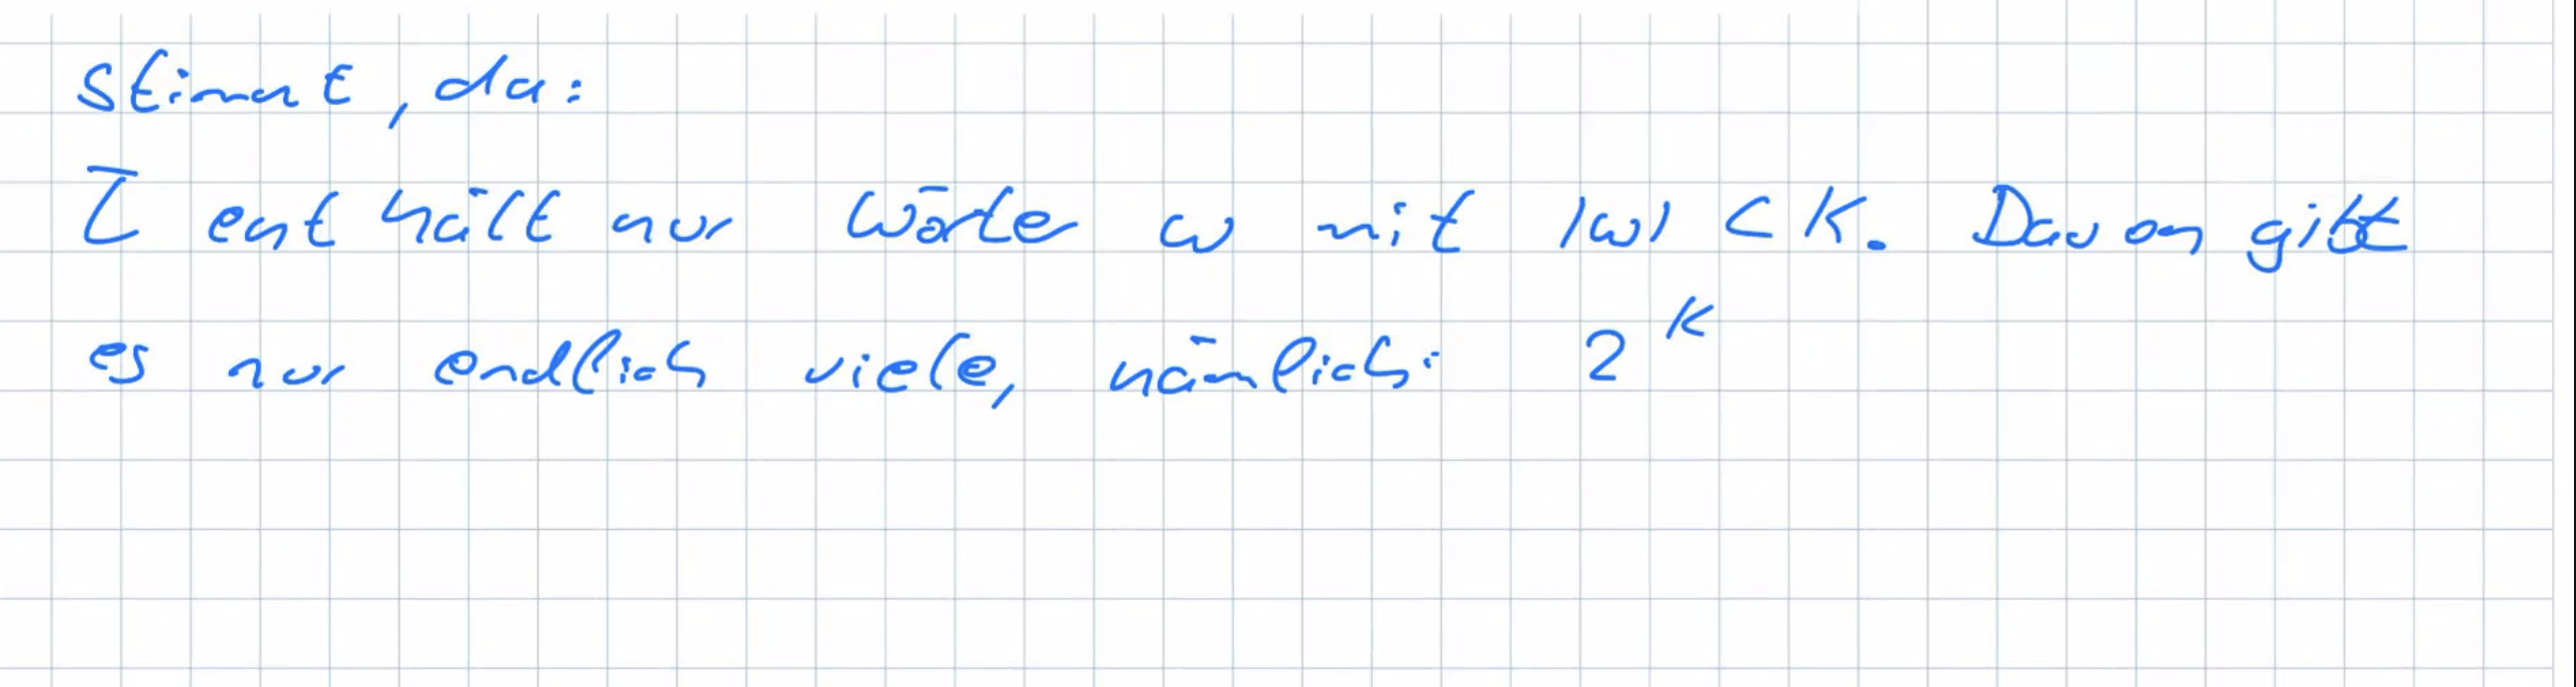 Stimmt, da:
L̅ enthält nur Wörter w mit |w| < K. Davon gibt
es nur endlich viele, nämlich: 2^K